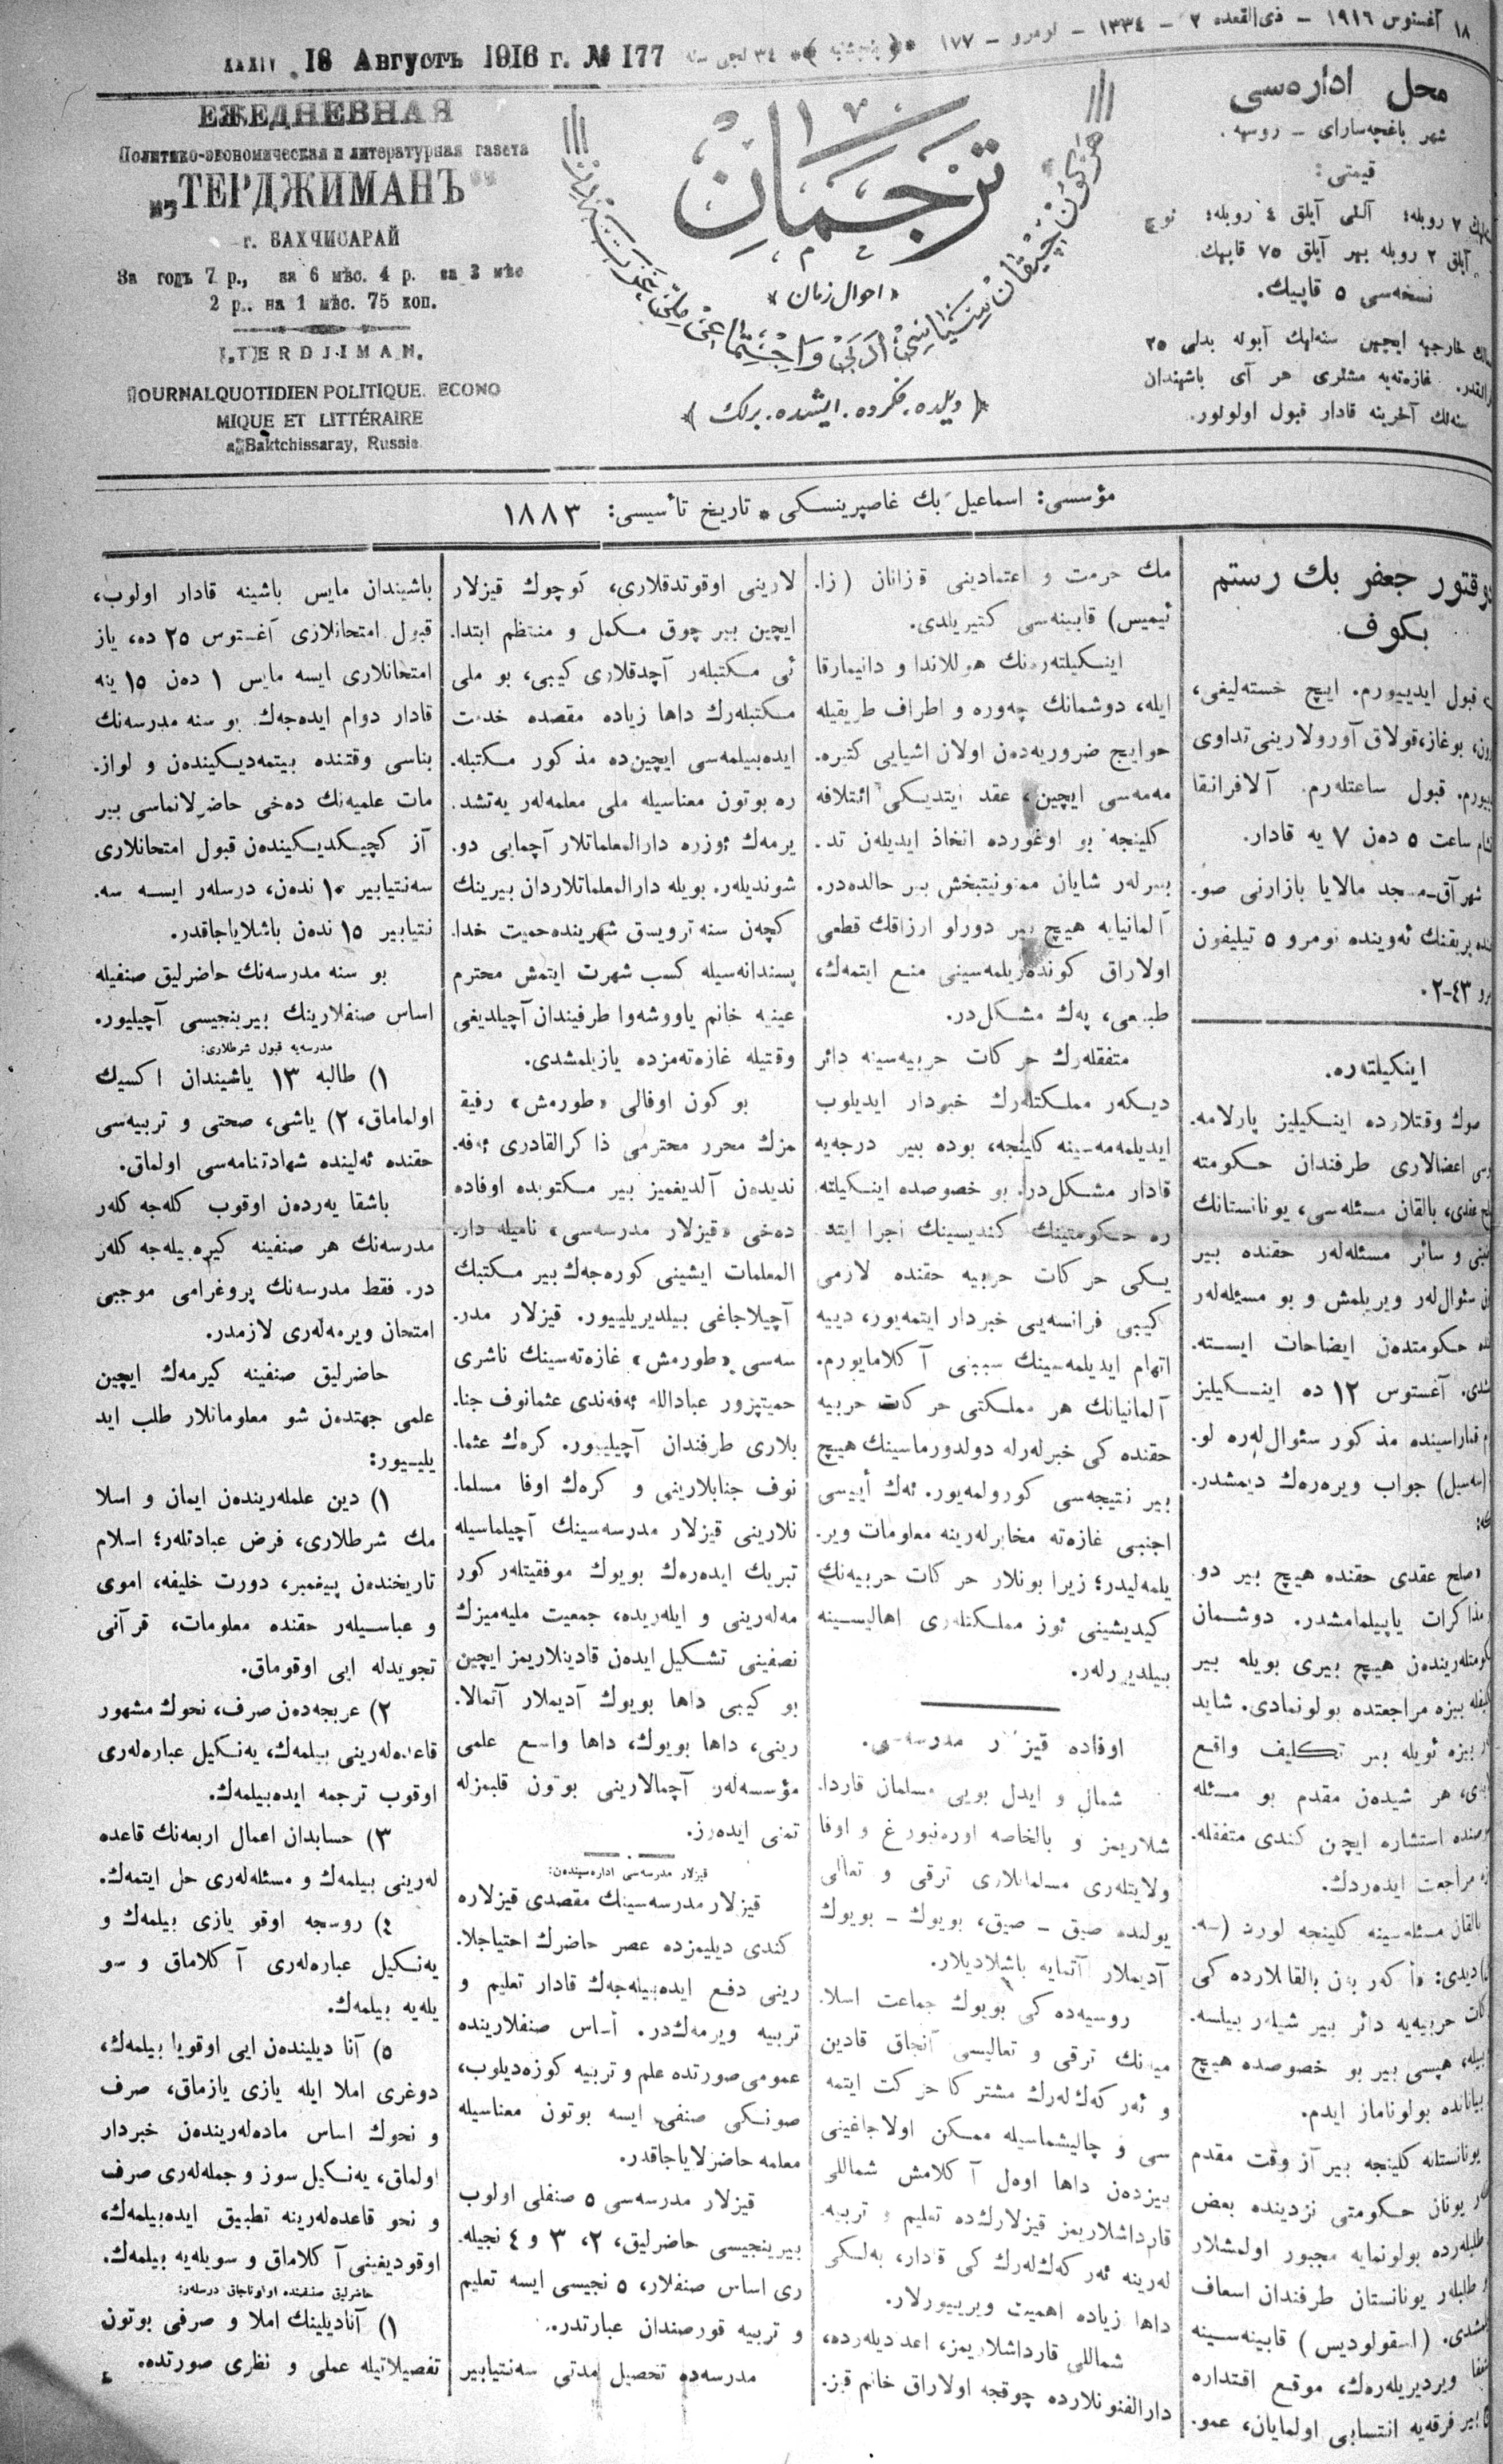 ١٨ آغستوس ١٩١٦ – ذی‌القعده ٢ – ١٣٣٤ – نومرو – ١٧٧ ٭﴿پنجشنبه﴾٭ ٣٤ نجی سنه
18 Августъ 1916 г. № 177
ЕЖЕДНЕВНАЯ
Политико-экономическая и литературная газета
„ТЕРДЖИМАНЪ"
г. БАХЧИСАРАЙ
За годъ 7 р., на 6 мѣс. 4 р. на 3 мѣс
2 р. на 1 мѣс. 75 коп.
TERDJIMAN
JOURNAL QUOTIDIEN POLITIQUE. ECONO
MIQUE ET LITTÉRAIRE
a Baktchissaray, Russie
ترجمان
«احوال زمان»
﴿دیلده. فكرده. ایشده. برلك﴾
محل اداره‌سی
شهر باغچه‌سارای – روسیه.
قیمتی:
٧ روبله؛ آلتی آیلق ٤ روبله؛ ئوچ
آیلق ٢ روبله بیر آیلق ٧٥ قاپیك
نسخه‌سی ٥ قاپیك.
خارجیه ایچین سنه‌لیك آبونه بدلی ٢٥
غازه‌ته‌یه مشتری هر آی باشیندان
سنه‌نك آخرینه قادار قبول اولونور.
مؤسسی: اسماعیل بك غاصپرینسكی ٭ تاریخ تأسیسی: ١٨٨٣
دوقتور جعفر بك رستم
بكوف
قبول ایدییورم. ایچ خسته‌لیغی،
بوغاز، قولاق آورولارینی تداوی
قبول ساعتله‌رم. آلافرانقا
ساعت ٥ ده‌ن ٧ یه قادار.
شهر آق-مسجد مالایا بازارنی صو.
ئه‌وینده نومرو ٥ تیلیفون
٤٣-٠٢
اینكیلته‌ره.
صوك وقتلارده اینكیلیز پارلامه.
اعضالاری طرفندان حكومته
عقدی، بالقان مسئله‌سی، یونانستانك
و سائر مسئله‌لر حقنده بیر
سئوال‌له‌ر ویریلمش و بو مسئله‌له‌ر
حكومتدن ایضاحات ایسته.
آغستوس ١٢ ده اینكیلیز
مذكور سئوال‌له‌ره لو.
(سه‌سیل) جواب ویره‌ره‌ك دیمشدر.
«صلح عقدی حقنده هیچ بیر دو.
مذاكرات یاپیلمامشدر. دوشمان
هیچ بیری بویله بیر
بیزه مراجعتده بولونمادی. شاید
بیزه ئویله بیر تكلیف واقع
هر شیدن مقدم بو مسئله
استشاره ایچن كندی متفقله.
مراجعت ایده‌ردك.
بالقان مسئله‌سینه كلینجه لورد (سه.
دیدی: «أكه‌ر بن بالقانلارده كی
حربیه‌یه دائر بیر شیلر بیلسه.
هپسی بیر بو خصوصده هیچ
بیاناتده بولوناماز ایدم.
یونانستانه كلینجه بیر آز وقت مقدم
یونان حكومتی نزدینده بعض
طلبله‌رده بولونمایه مجبور اولمشلار
طلبله‌ر یونانستان طرفندان اسعاف
(اسقولودیس) قابینه‌سینه
ویردیریله‌ره‌ك، موقع اقتداره
بیر فرقه‌یه انتسابی اولمایان، عمو.
مك حرمت و اعتمادینی قازانان (زا.
ئیمیس) قابینه‌سی كتیریلدی.
اینكیلته‌رنك هوللاندا و دانیمارقا
ایله، دوشمانك چه‌وره و اطراف طریقیله
حوایج ضروریه‌ده‌ن اولان اشیایی كتیره.
مه‌مه‌سی ایچین، عقد ایتدیكی ائتلافه
كلینجه بو اوغورده اتخاذ ایدیله‌ن تد.
بیرلر شایان ممنونیتبخش بیر حالده‌در.
آلمانیایه هیچ بیر دورلو ارزاقك قطعی
اولاراق كونده‌ریلمه‌سینی منع ایتمه‌ك،
طبیعی، په‌ك مشكل‌در.
متفقله‌رك حركات حربیه‌سینه دائر
دیكه‌ر مملكتله‌رك خبردار ایدیلوب
ایدیلمه‌مه‌سینه كلینجه، بوده بیر درجه‌یه
قادار مشكل‌در. بو خصوصده اینكیلته.
ره حكومتینك كندیسینك اجرا ایتد.
یكی حركات حربیه حقنده لازمی
كیبی فرانسه‌یی خبردار ایتمه‌یور، دییه
اتهام ایدیلمه‌سینك سببنی آكلامایورم.
آلمانیانك هر مملكتی حركات حربیه
حقنده كی خبرله‌رله دولدورماسینك هیچ
بیر نتیجه‌سی كورولمه‌یور. ئه‌ك أییسی
اجنبی غازه‌ته مخابرله‌رینه معلومات ویر.
یلمه‌لیدر؛ زیرا بونلار حركات حربیه‌نك
كیدیشینی ئوز مملكتله‌ری اهالیسینه
بیلدیررله‌ر.
اوفاده قیزلار مدرسه‌سی.
شمال و ایدل بویی مسلمان قاردا.
شلاریمز و بالخاصه اوره‌نبورغ و اوفا
ولایتله‌ری مسلمانلاری ترقی و تعالی
یولنده صیق – صیق، بویوك – بویوك
آدیملار آتمایه باشلادیلار.
روسیه‌ده كی بویوك جماعت اسلا.
میه‌نك ترقی و تعالیسی آنجاق قادین
و ئه‌ركه‌ك‌له‌رك مشتركا حركت ایتمه
سی و چالیشماسیله ممكن اولاجاغینی
بیزده‌ن داها اوه‌ل آكلامش شماللی
قارداشلاریمز قیزلارك‌ده تعلیم و تربیه.
له‌رینه ئه‌ركه‌ك‌له‌رك كی قادار، به‌لكی
داها زیاده اهمیت ویرییورلار.
شماللی قارداشلاریمز، اعدادیله‌رده،
دارالفنونلارده چوقجه اولاراق خانم قیز.
لارینی اوقوتدقلاری، كوچوك قیزلار
ایچین بیر چوق مكمل و منتظم ابتدا.
ئی مكتبله‌ر آچدقلاری كیبی، بو ملی
مكتبله‌رك داها زیاده مقصده خدمت
ایده‌بیلمه‌سی ایچین‌ده مذكور مكتبله.
ره بوتون معناسیله ملی معلمه‌له‌ر یه‌تشد.
یرمه‌ك ئوزره دارالمعلماتلار آچمایی دو.
شوندیله‌ر. بویله دارالمعلماتلاردان بیرینك
كچه‌ن سنه ترویسق شهرینده حمیت خدا.
پسندانه‌سیله كسب شهرت ایتمش محترم
عینیه خانم یاووشه‌وا طرفیندان آچیلدیغی
وقتیله غازه‌ته‌مزده یازیلمشدی.
بو كون اوفالی «طورمش» رفیق
مزك محرر محترمی ذاكرالقادری ئه‌فه.
ندیده‌ن آلدیغمیز بیر مكتوبده اوفاده
ده‌خی «قیزلار مدرسه‌سی» نامیله دار.
المعلمات ایشینی كوره‌جه‌ك بیر مكتبك
آچیلاجاغی بیلدیریلییور. قیزلار مدر.
سه‌سی «طورمش» غازه‌ته‌سینك ناشری
حمیتپرور عبادالله ئه‌فه‌ندی عثمانوف جنا.
بلاری طرفندان آچیلییور. كره‌ك عثما.
نوف جنابلارینی و كره‌ك اوفا مسلما.
نلارینی قیزلار مدرسه‌سینك آچیلماسیله
تبریك ایده‌ره‌ك بویوك موفقیتله‌ر كور
مه‌له‌رینی و ایله‌ریده، جمعیت ملیه‌میزك
نصفینی تشكیل ایده‌ن قادینلاریمز ایچین
بو كیبی داها بویوك آدیملار آتمالا.
رینی، داها بویوك، داها واسع علمی
مؤسسه‌له‌ر آچمالارینی بوتون قلبمزله
تمنی ایده‌رز.
قیزلار مدرسه‌سی اداره‌سیندن:
قیزلار مدرسه‌سینك مقصدی قیزلاره
كندی دیلیمزده عصر حاضرك احتیاجلا.
رینی دفع ایده‌بیله‌جه‌ك قادار تعلیم و
تربیه ویرمه‌ك‌در. أساس صنفلارینده
عمومی صورتده علم و تربیه كوزه‌دیلوب،
صونكی صنفی ایسه بوتون معناسیله
معلمه حاضرلایاجاقدر.
قیزلار مدرسه‌سی ٥ صنفلی اولوب
بیرینجیسی حاضرلیق، ٢، ٣ و ٤ نجیله.
ری اساس صنفلار، ٥ نجیسی ایسه تعلیم
و تربیه قورصندان عبارتدر.
مدرسه‌ده تحصیل مدتی سه‌نتیابیر
باشیندان مایس باشینه قادار اولوب،
قبول امتحانلاری آغستوس ٢٥ ده، یاز
امتحانلاری ایسه مایس ١ ده‌ن ١٥ ینه
قادار دوام ایده‌جه‌ك. بو سنه مدرسه‌نك
بناسی وقتنده بیتمه‌دیكیندن و لواز.
مات علمیه‌نك ده‌خی حاضرلانماسی بیر
آز كچیكدیكیندن قبول امتحانلاری
سه‌نتیابیر ١٠ نده‌ن، درسله‌ر ایسه سه.
نتیابیر ١٥ نده‌ن باشلایاجاقدر.
بو سنه مدرسه‌نك حاضرلیق صنفیله
اساس صنفلارینك بیرینجیسی آچیلیور.
مدرسه‌یه قبول شرطلاری:
١) طالبه ١٣ یاشیندان اكسیك
اولماماق، ٢) یاشی، صحتی و تربیه‌سی
حقنده ئه‌لینده شهادتنامه‌سی اولماق.
باشقا یه‌رده‌ن اوقوب كله‌جه كله‌ر
مدرسه‌نك هر صنفینه كیره‌بیله‌جه كله‌ر
در. فقط مدرسه‌نك پروغرامی موجبی
امتحان ویرمه‌له‌ری لازمدر.
حاضرلیق صنفینه كیرمه‌ك ایچین
علمی جهتدن شو معلوماتلار طلب اید
یلییور:
١) دین علمله‌رینده‌ن ایمان و اسلا
مك شرطلاری، فرض عبادتله‌ر؛ اسلام
تاریخنده‌ن پیغمبر، دورت خلیفه، اموی
و عباسیله‌ر حقنده معلومات، قرآنی
تجویدله ایی اوقوماق.
٢) عربجه‌ده‌ن صرف، نحوك مشهور
قاعده‌له‌رینی بیلمه‌ك، یه‌نكیل عباره‌له‌ری
اوقوب ترجمه ایده‌بیلمه‌ك.
٣) حسابدان اعمال اربعه‌نك قاعده
له‌رینی بیلمه‌ك و مسئله‌له‌ری حل ایتمه‌ك.
٤) روسجه اوقو یازی بیلمه‌ك و
یه‌نكیل عباره‌له‌ری آكلاماق و سو
یله‌یه بیلمه‌ك.
٥) آنا دیلینده‌ن ایی اوقویا بیلمه‌ك،
دوغری املا ایله یازی یازماق، صرف
و نحوك اساس ماده‌له‌رینده‌ن خبردار
اولماق، یه‌نكیل سوز و جمله‌له‌ری صرف
و نحو قاعده‌له‌رینه تطبیق ایده‌بیلمه‌ك،
اوقودیغینی آكلاماق و سویله‌یه بیلمه‌ك.
حاضرلیق صنفینده اوقوناجاق درسله‌ر:
١) آنادیلینك املا و صرفی بوتون
تفصیلاتیله عملی و نظری صورتده.